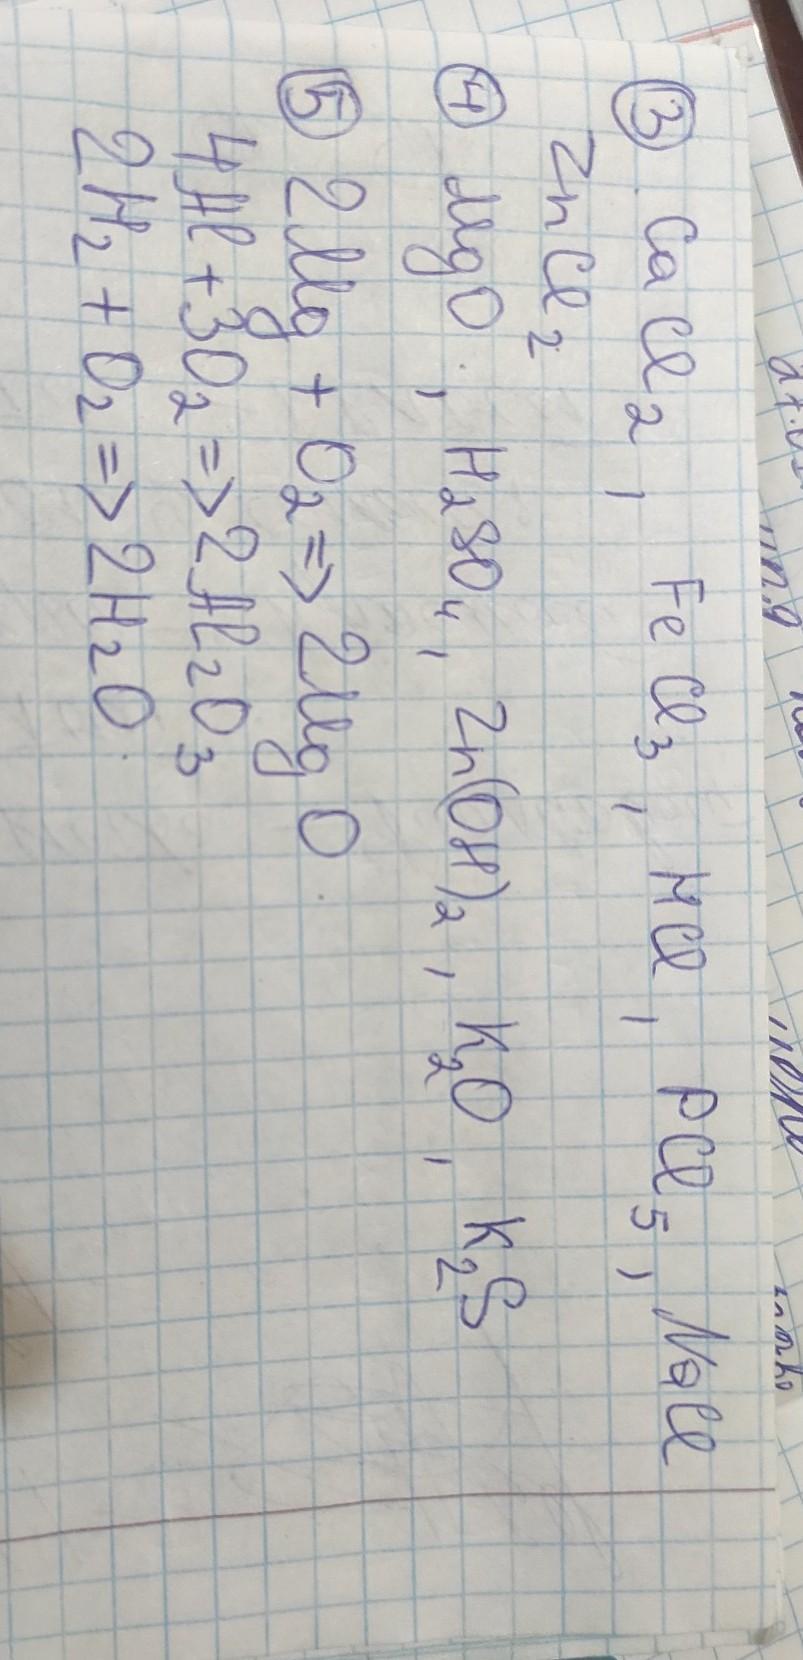 ③ CaCl₂, FeCl₃, HCl, PCl₅, NaCl
ZnCl₂
④ MgO, H₂SO₄, Zn(OH)₂, K₂O, K₂S
⑤ 2Mg + O₂ => 2MgO
4Al + 3O₂ => 2Al₂O₃
2H₂ + O₂ => 2H₂O